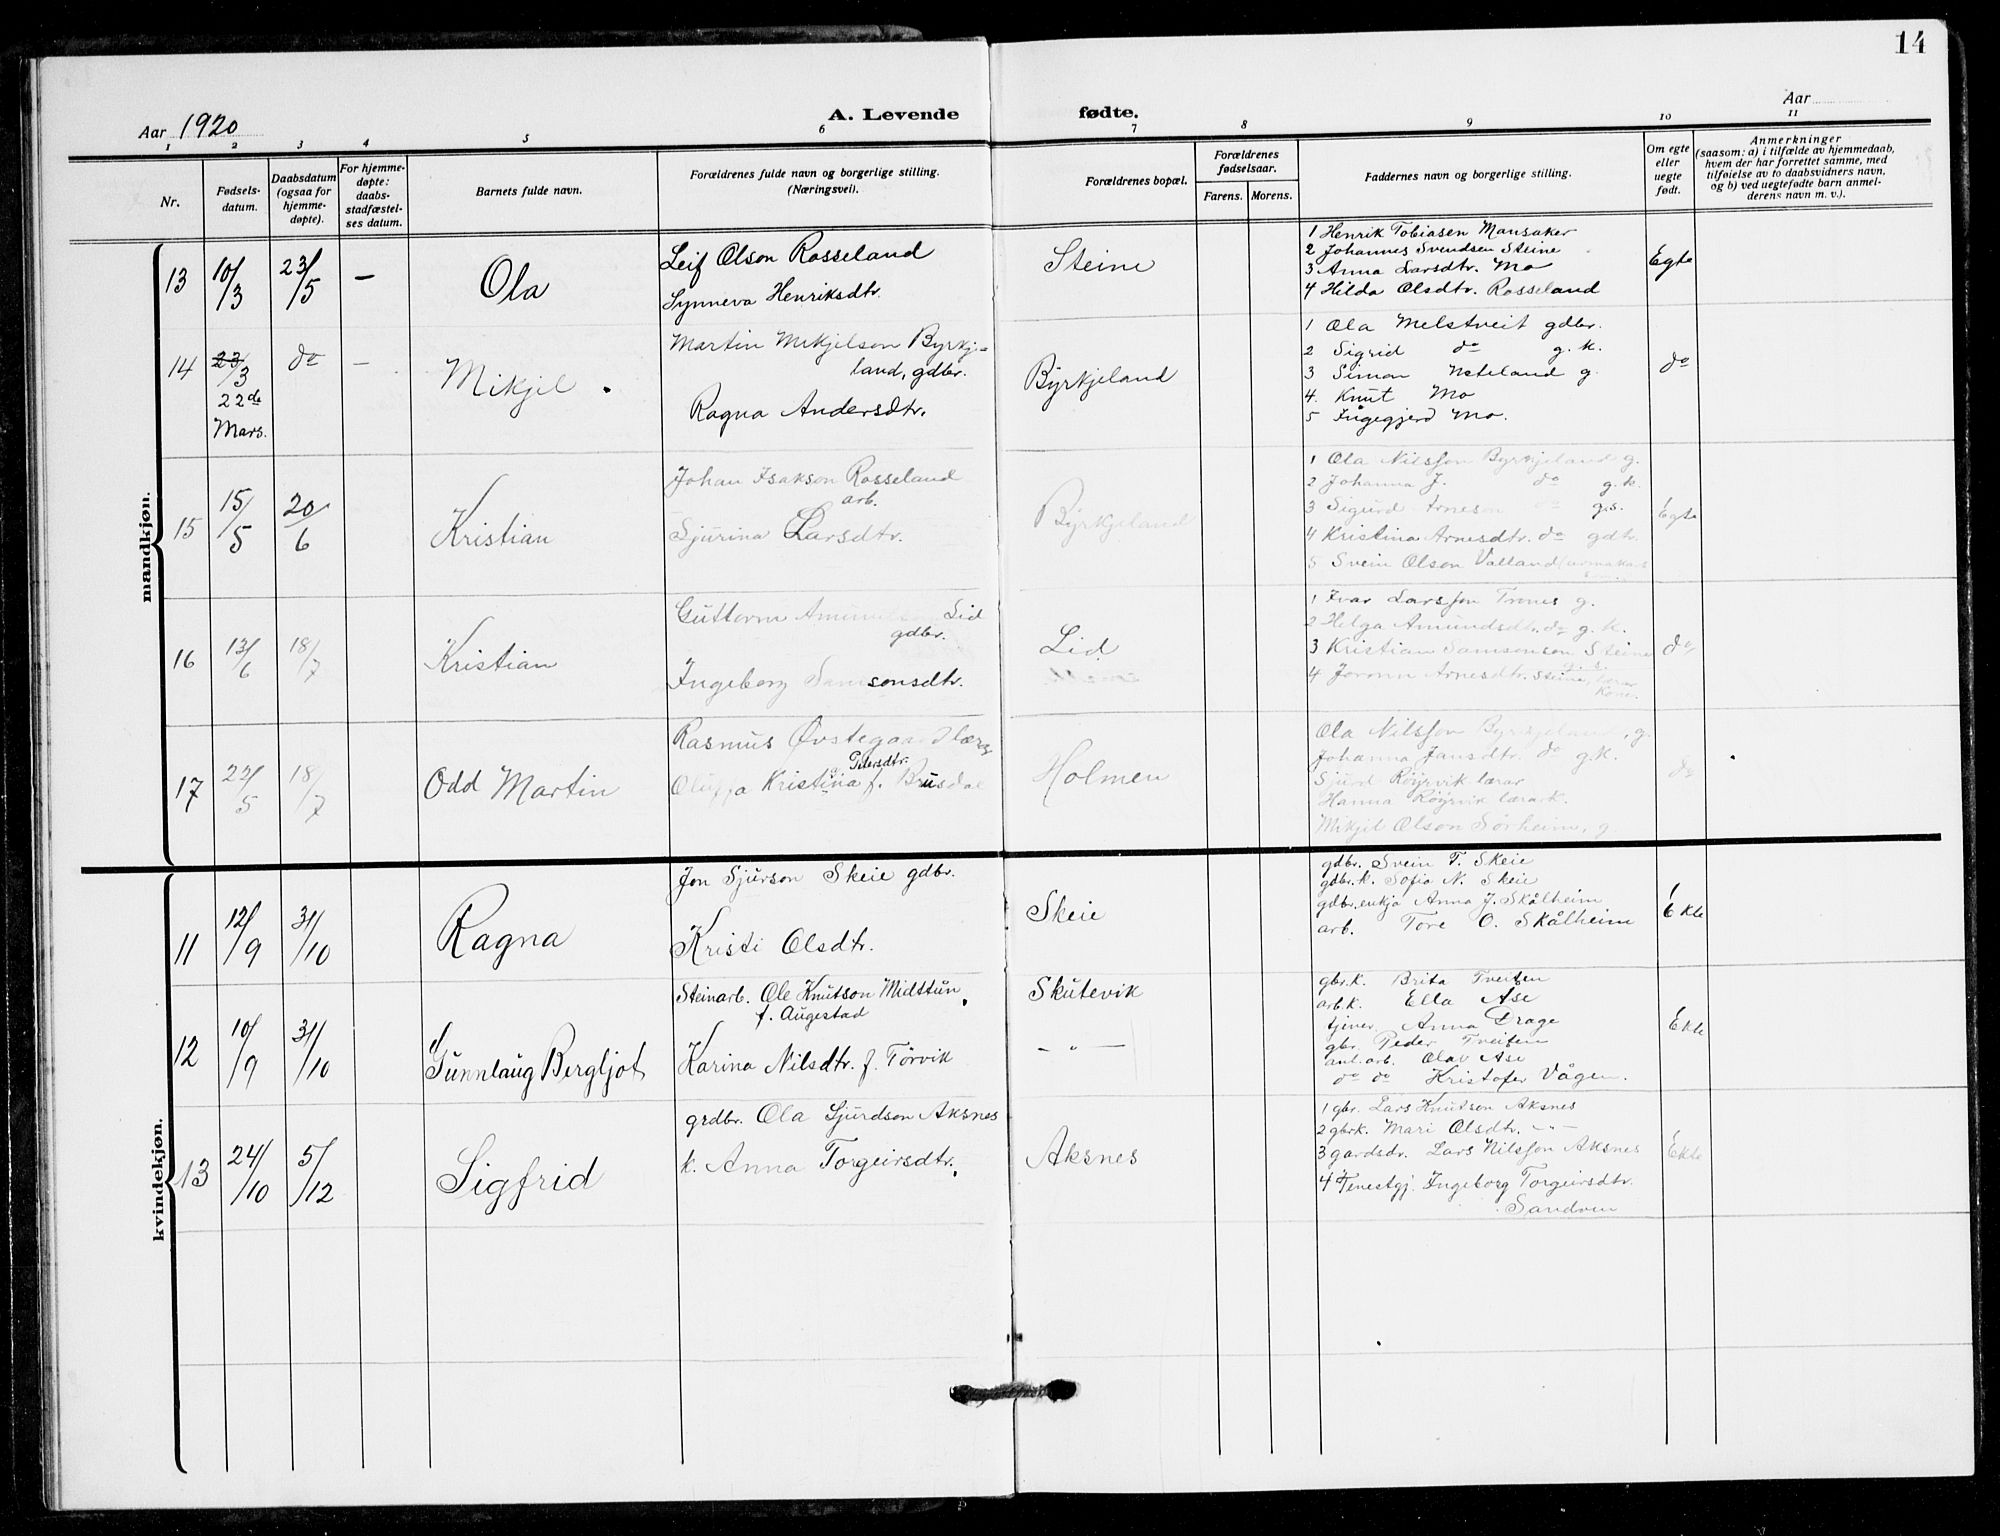 14
Aar 1920
A. Levende fødte.
Aar
1 2 3 4 5 6 7 8 9 10 11
Nr.
Fødsels-
datum.
Daabsdatum
(ogsaa for
hjemme-
døpte).
For hjemme-
døpte:
daabs-
stadfæstel-
ses datum.
Barnets fulde navn.
Forældrenes fulde navn og borgerlige stilling.
(Næringsvei).
Forældrenes bopæl.
Forældrenes
fødselsaar.
Farens. Morens.
Faddernes navn og borgerlige stilling.
Om egte
eller
uegte
født.
Anmerkninger
(saasom: a) i tilfælde av hjemmedaab,
hvem der har forrettet samme, med
tilføielse av to daabsvidners navn,
og b) ved uegtefødte barn anmel-
derens navn m. v.).
mandkjøn.
13 10/3 23/5 — Ola
Leif Olson Rosseland
Synneva Henriksdtr.
Steine
1 Henrik Tobiasen Mansaker
2 Johannes Svendsen Steine
3 Anna Larsdtr. Mo
4 Hilda Olsdtr. Rosseland
Egte
14 23/3 do — Mikjel
22de
Mars.
Martin Mikjelson Byrkje-
land, gdbr.
Ragna Andersdtr.
Byrkjeland
1 Ola Melstveit gdbr.
2 Sigrid do g. k.
3 Simon Neteland g.
4. Knut Mo
5 Ingegjerd Mo.
do
15 15/5 20/6 Kristian
Johan Isakson Rosseland
arb.
Sjurina Larsdtr.
Byrkjeland
1 Ola Nilsson Byrkjeland g.
2 Johanna J. do g. k.
3 Sigurd Arneson do g.s.
4 Kristina Arnesdtr. do gdtr.
5 Svein Olson Valland
Egte
16 13/6 18/7 Kristian
Guttorm Lid
gdbr.
Ingeborg Samsonsdtr.
Lid
1 Ivar Larsson Trones g.
2 Helga Amundsdtr. do g. k.
3 Kristian Samsonson Steine
g. s.
4 Joronn Arnesdtr. Steine,
Kone.
do
17 22/5 18/7 Odd Martin
Rasmus Øvstegaard lærar
Petersdtr.
Oluffa Kristina f. Brusdal
Holmen
Ola Nilsson Byrkjeland, g.
Johanna Jansdtr. do g.k.
Sjurd Røyrvik lærar
Hanna Røyrvik lærark.
Mikjel Olson Sørheim, g.
do
kvindekjøn.
11 12/9 31/10 Ragna
Jon Sjurson Skeie gdbr.
Kristi Olsdtr.
Skeie
gdbr. Svein T. Skeie
gdbr.k. Sofia N. Skeie
gdbr.enkja Anna J. Skålheim
arb. Tore O. Skålheim
Ekte
12 10/9 31/10 Gunnlaug Bergljot
Steinarb. Ole Knutson Midttun,
f. Augestad
Karina Nilsdtr. f. Tørvik
Skutevik
— " —
gbr.k. Brita Tveiten
arb.k. Ella Ase
tjener. Anna Drage
gbr. Peder Tveiten
anl.arb. Olav Ase
do do Kristofer Vågen.
Ekte
13 24/10 5/12 Sigfrid
grdbr. Ola Sjurdson Aksnes
k. Anna Torgeirsdtr.
Aksnes
1 gbr. Lars Knutson Aksnes
2 gbrk. Mari Olsdtr. -"-
3 gardsdr. Lars Nilsson Aksnes
4 Tenestgj. Ingeborg Torgeirsdtr.
Sandven
Ekte